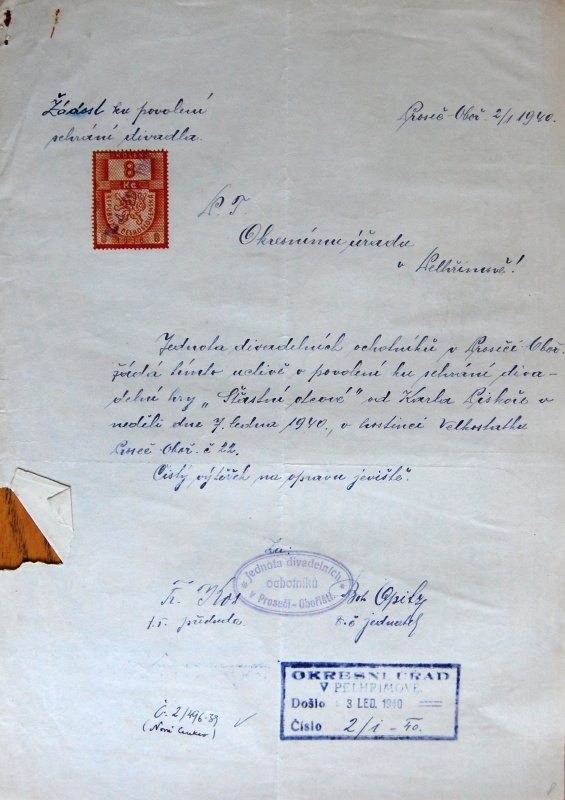 Žádost ku povolení
sehrání divadla.
Proseč-Oboř. 2/1 1940.
KOLEK
8
Kč
REPUBLIKA ČESKOSLOVENSKÁ
8 8
P. T.
Okresnímu úřadu
v Pelhřimově!
Jednota divadelních ochotníků v Proseči Oboř.
žádá tímto uctivě o povolení ku sehrání diva-
delní hry „Šťastní otcové" od Karla Piskoře v
neděli dne 7. ledna 1940., v hostinci Velkostatku
Proseč Oboř. č 22.
Čistý výtěžek na opravu jeviště.
Za:
Jednota divadelních
ochotníků
v Proseči-Obořišti.
Fr. Kos
Boh. Opitz
t. č. předseda.
t. č. jednatel
OKRESNÍ ÚŘAD
V PELHŘIMOVĚ.
Došlo : 3 LED. 1940
Číslo 2/1 - 40.
č. 2/496-39
(Nová Cerekev)
8